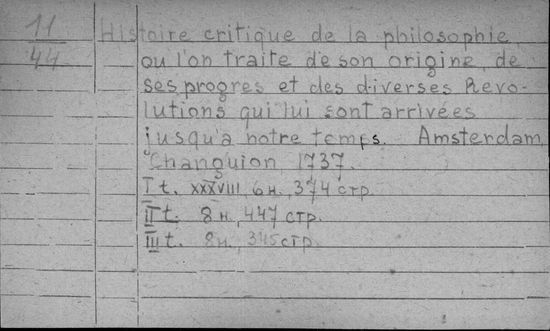 11
44
Histoire critique de la philosophie
ou l'on traite de son origine, de
ses progres et des diverses Revo-
lutions qui lui sont arrivées
jusqu'a notre temps. Amsterdam,
Changuion, 1737.
I t. XXXVIII, 6 н., 374 стр.
II t. 8 н., 447 стр.
III t. 8 н., 345 стр.